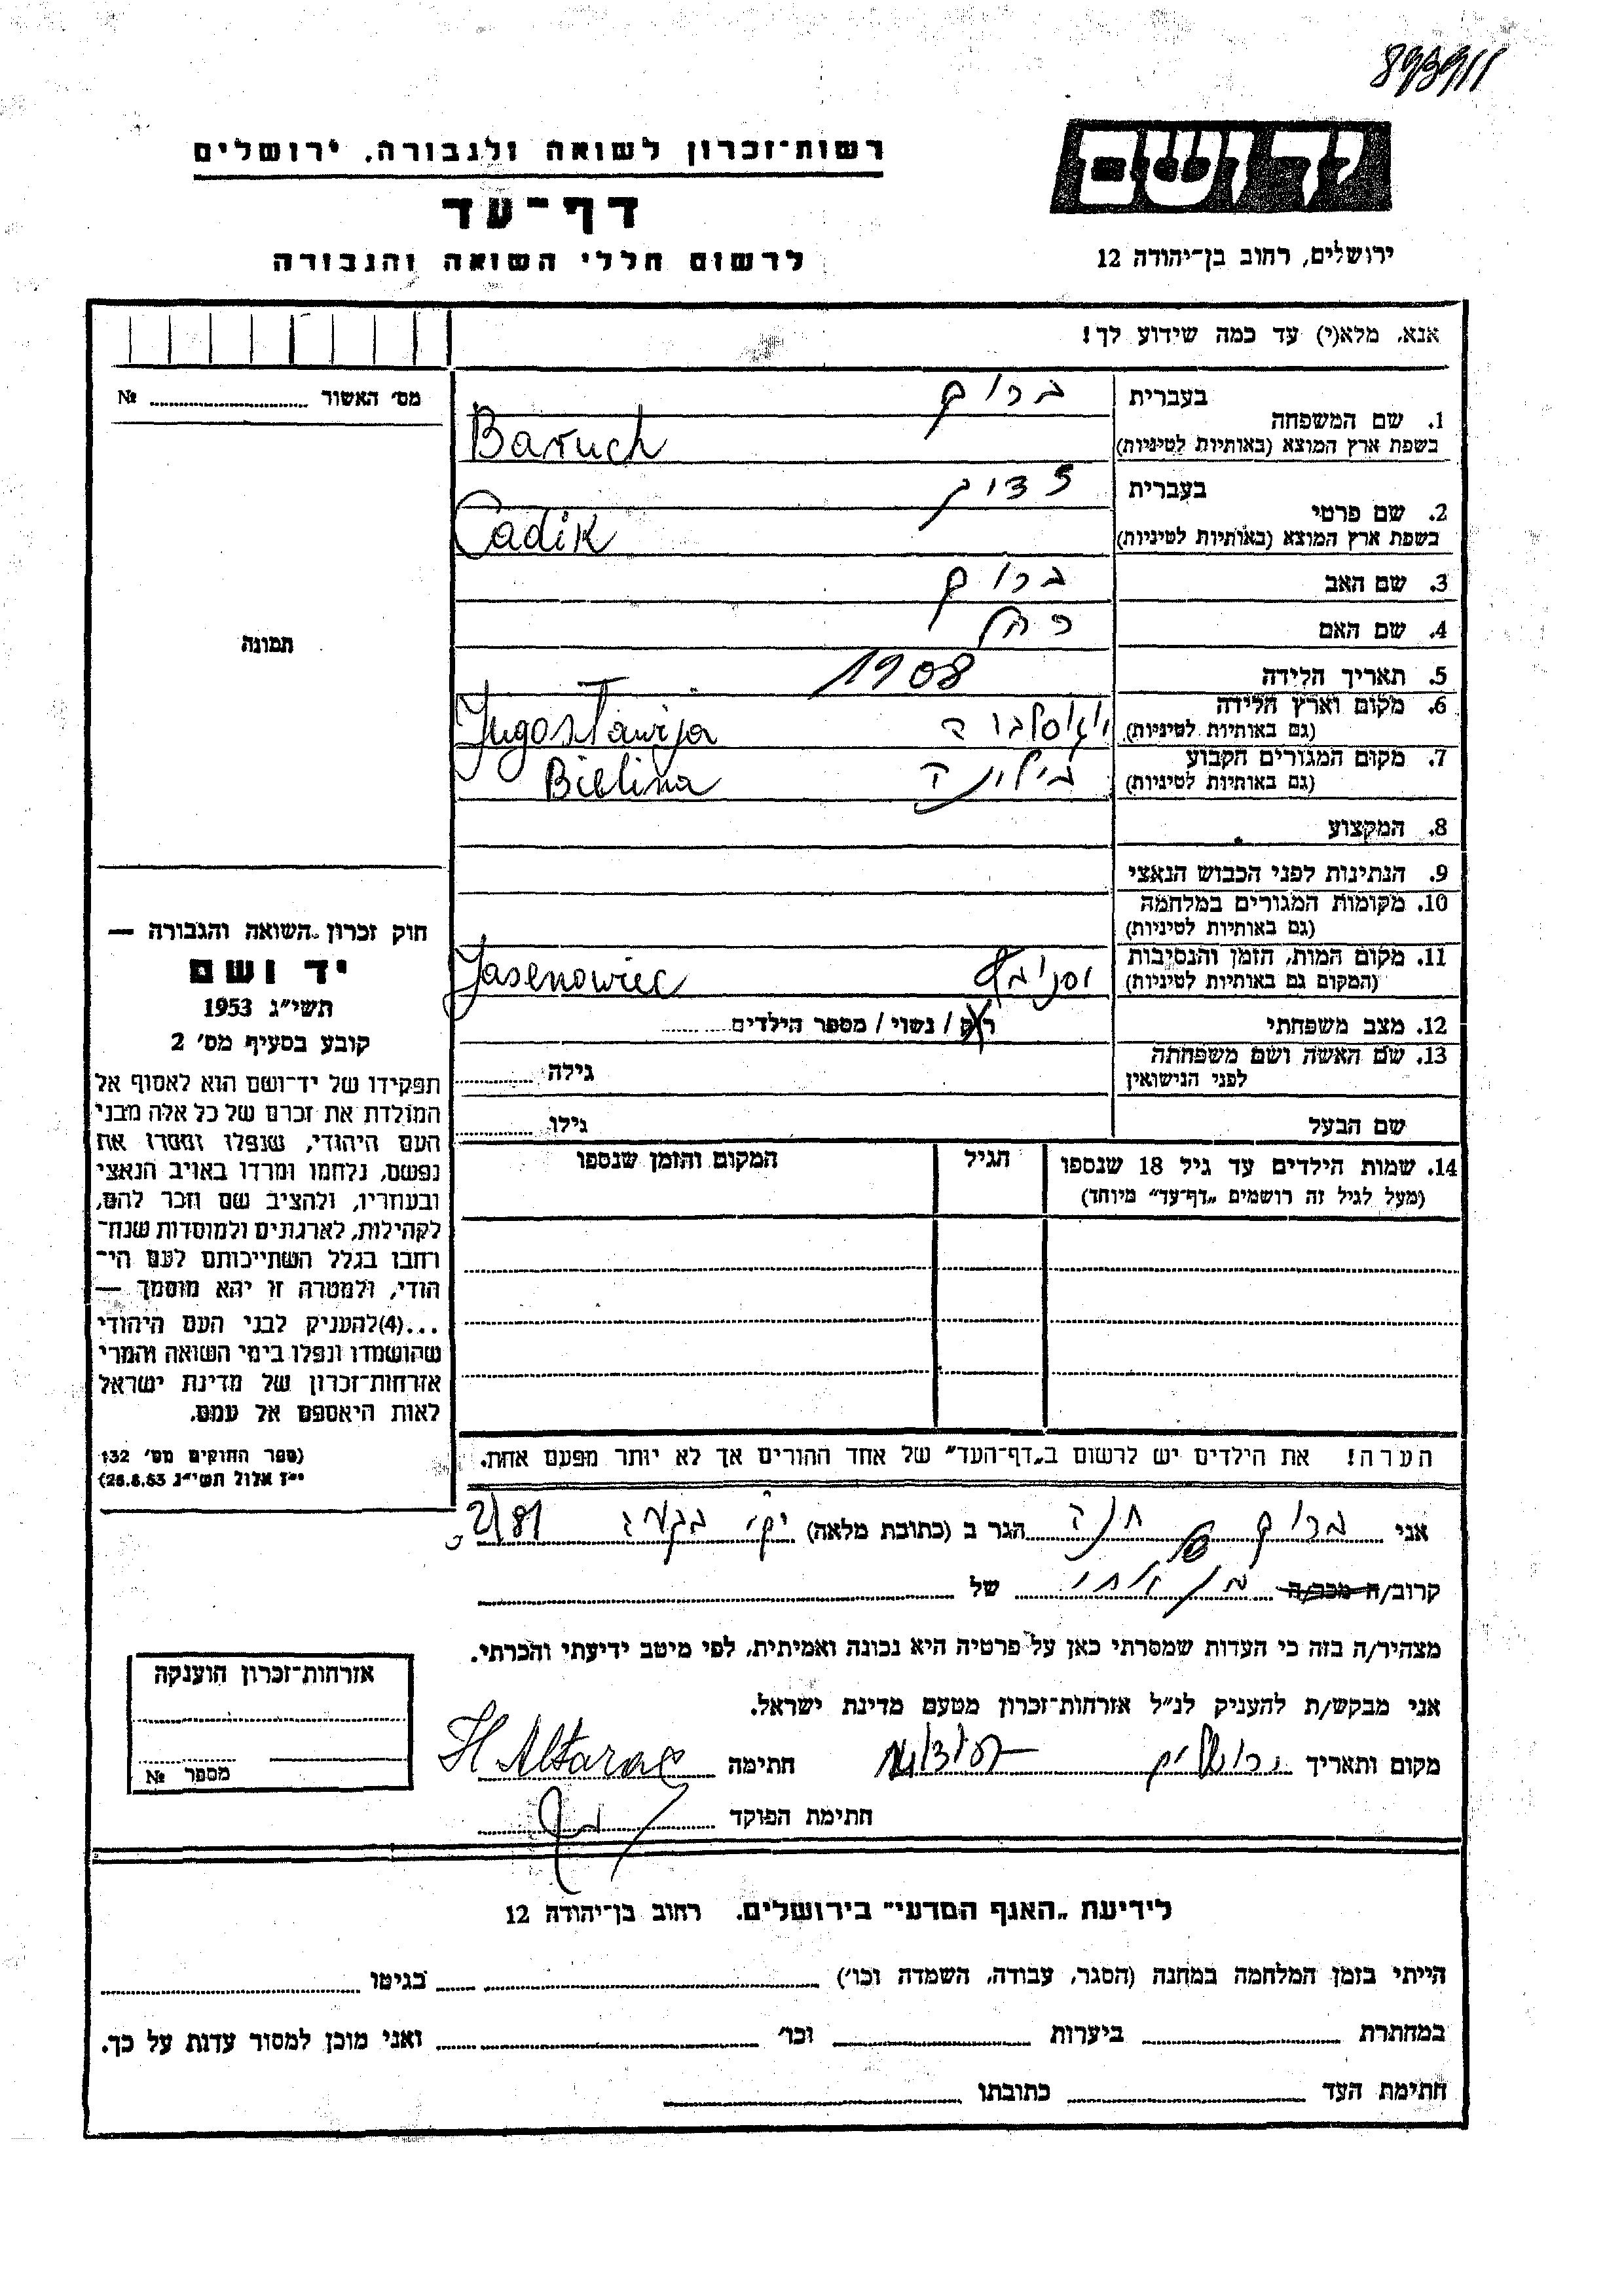 רשות־זכרון לשואה ולגבורה, ירושלים
דף־עד
לרשום חללי השואה והגבורה
יד ושם
ירושלים, רחוב בן־יהודה 12
אנא, מלא(י) עד כמה שידוע לך!
מס׳ האשור № 
1. שם המשפחה
בעברית ברוך
בשפת ארץ המוצא (באותיות לטיניות) Baruch
2. שם פרטי
בעברית צדוק
בשפת ארץ המוצא (באותיות לטיניות) Cadik
3. שם האב ברוך
4. שם האם רחל
5. תאריך הלידה 1908
6. מקום וארץ הלידה
(גם באותיות לטיניות) Jugoslawija
7. מקום המגורים הקבוע
(גם באותיות לטיניות) Bielina
8. המקצוע
9. הנתינות לפני הכבוש הנאצי
10. מקומות המגורים במלחמה
(גם באותיות לטיניות)
11. מקום המות, הזמן והנסיבות
(המקום גם באותיות לטיניות) Jasenowiec
12. מצב משפחתי רוק / נשוי / מספר הילדים
13. שם האשה ושם משפחתה
לפני הנישואין גילה
שם הבעל גילו
14. שמות הילדים עד גיל 18 שנספו
(מעל לגיל זה רושמים „דף־עד״ מיוחד)
הגיל
המקום והזמן שנספו
הערה! את הילדים יש לרשום ב„דף־העד״ של אחד ההורים אך לא יותר מפעם אחת.
תמונה
חוק זכרון השואה והגבורה —
יד ושם
תשי״ג 1953
קובע בסעיף מס׳ 2
תפקידו של יד־ושם הוא לאסוף אל
המולדת את זכרם של כל אלה מבני
העם היהודי, שנפלו ומסרו את
נפשם, נלחמו ומרדו באויב הנאצי
ובעוזריו, ולהציב שם וזכר להם,
לקהילות, לארגונים ולמוסדות שנח־
רבו בגלל השתייכותם לעם הי־
הודי, ולמטרה זו יהא מוסמך —
...(4)להעניק לבני העם היהודי
שהושמדו ונפלו בימי השואה והמרי
אזרחות־זכרון של מדינת ישראל
לאות היאספם אל עמם.
(ספר החוקים מס׳ 132
י״ז אלול תשי״ג 28.8.53)
אני ברוך חנה הגר ב (כתובת מלאה)
קרוב/ה מכר/ה של
מצהיר/ה בזה כי העדות שמסרתי כאן על פרטיה היא נכונה ואמיתית, לפי מיטב ידיעתי והכרתי.
אני מבקש/ת להעניק לנ״ל אזרחות־זכרון מטעם מדינת ישראל.
מקום ותאריך ירושלים חתימה H Altarac
חתימת הפוקד
אזרחות־זכרון הוענקה
מספר №
לידיעת „האגף המדעי״ בירושלים, רחוב בן־יהודה 12
הייתי בזמן המלחמה במחנה (הסגר, עבודה, השמדה וכו׳) בגיטו
במחתרת ביערות וכו׳ ואני מוכן למסור עדות על כך.
חתימת העד כתובתו